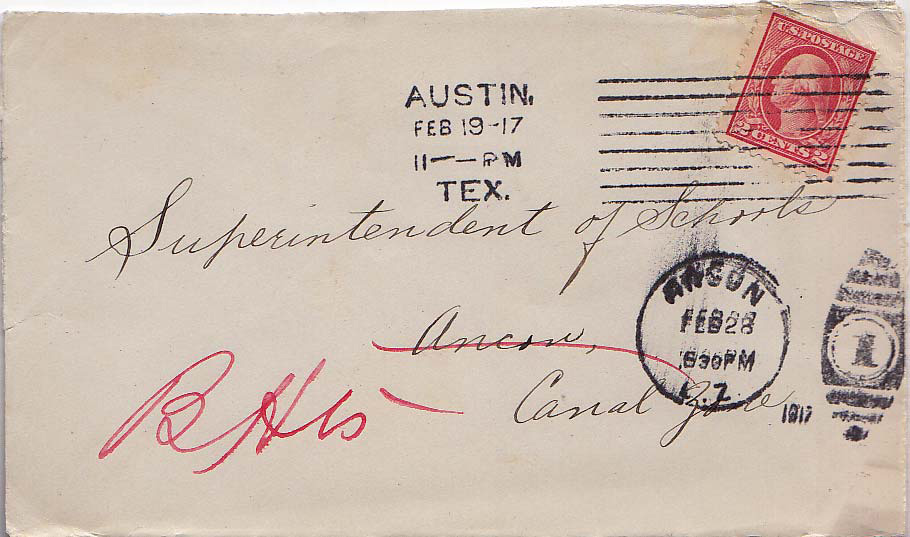 U.S. POSTAGE
2 CENTS 2
AUSTIN,
FEB 19-17
11 — PM
TEX.
Superintendent of Schools
Ancon,
Canal Zone
B Hts
ANCON
FEB 28
630PM
C.Z.
1917
1